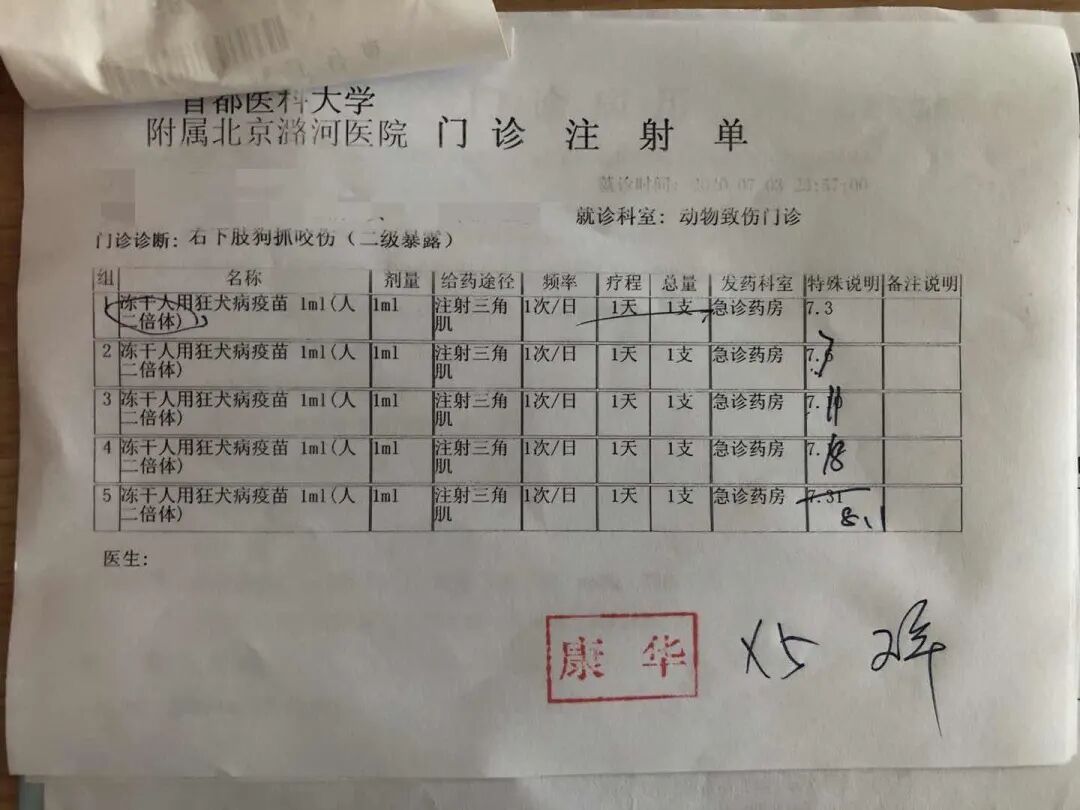 首都医科大学
附属北京潞河医院 门诊注射单
就诊时间: 2020 07 03 23:57:00
就诊科室: 动物致伤门诊
门诊诊断: 右下肢狗抓咬伤(二级暴露)
组 名称 剂量 给药途径 频率 疗程 总量 发药科室 特殊说明 备注说明
1 冻干人用狂犬病疫苗 1ml(人二倍体) 1ml 注射三角肌 1次/日 1天 1支 急诊药房 7.3
2 冻干人用狂犬病疫苗 1ml(人二倍体) 1ml 注射三角肌 1次/日 1天 1支 急诊药房 7.
3 冻干人用狂犬病疫苗 1ml(人二倍体) 1ml 注射三角肌 1次/日 1天 1支 急诊药房 7.11
4 冻干人用狂犬病疫苗 1ml(人二倍体) 1ml 注射三角肌 1次/日 1天 1支 急诊药房 7.18
5 冻干人用狂犬病疫苗 1ml(人二倍体) 1ml 注射三角肌 1次/日 1天 1支 急诊药房 7.31
8.1
医生:
康华 X5